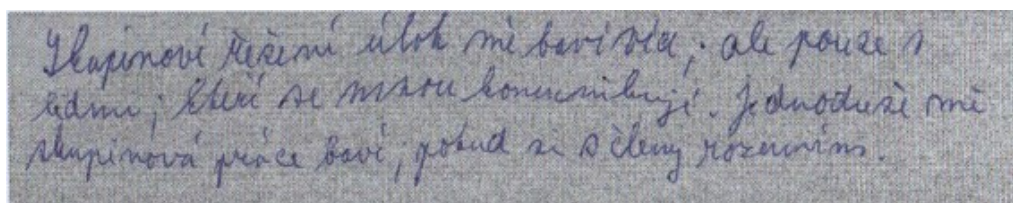 Skupinové řešení úloh mě baví více, ale pouze s
lidmi, kteří se mnou komunikují. Jednoduše mě
skupinová práce baví, pokud si s členy rozumím.